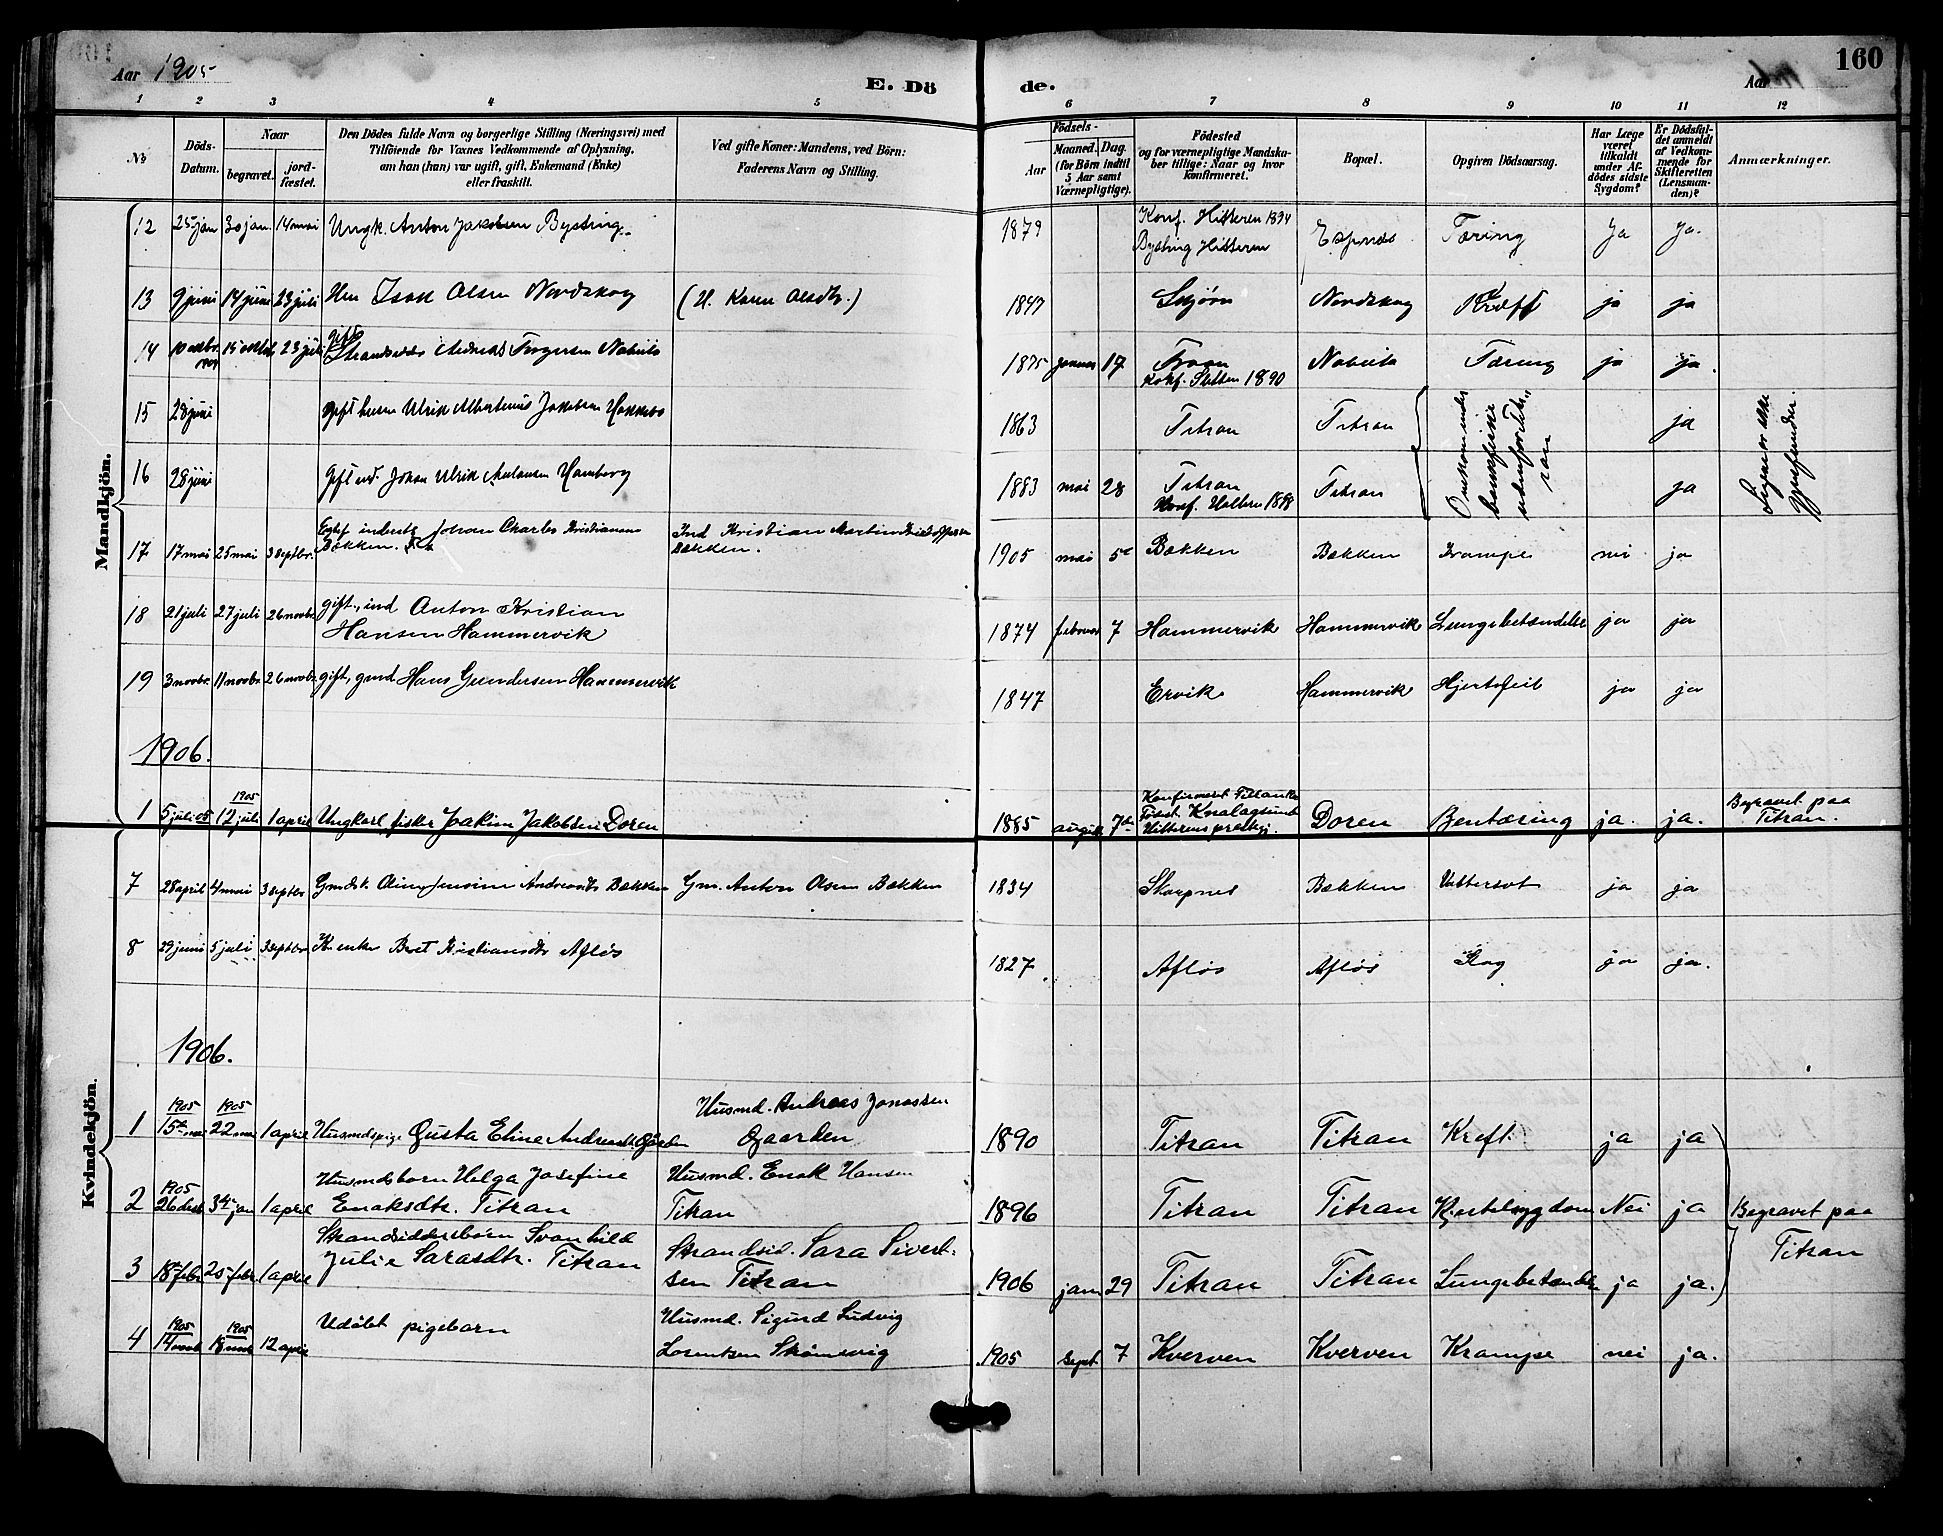 160
Aar 1905
E. Dö
de.
Aar
1 2 3 4 5 6 7 8 9 10 11 12
No
Döds-
Datum.
Naar
begravet.
jord-
fæstet.
Den Dödes fulde Navn og borgerlige Stilling (Næringsvei) med
Tilföiende for Voxnes Vedkommende af Oplysning,
om han (hun) var ugift, gift, Enkemand (Enke)
eller fraskilt.
Ved gifte Koner: Mandens, ved Börn:
Faderens Navn og Stilling.
Födsels-
Aar
Maaned. Dag.
(for Börn indtil
5 Aar samt
Værnepligtige).
Födested
og for værnepligtige Mandska-
ber tillige: Naar og hvor
konfirmeret.
Bopæl.
Opgiven Dödsaarsag.
Har Læge
været
tilkaldt
under Af-
dödes sidste
Sygdom?
Er Dödsfal-
det anmeldt
af Vedkom-
mende for
Skifteretten
(Lensman-
den)?
Anmærkninger.
Mandkjön.
12 25 jan 30 jan. 14 mai Ungk. Anton Jakobsen Bysting. 1879 Konf. Hitteren 1894
Bysting Hitteren Espnes Tæring Ja Ja.
13 9 juni 14 juni 23 juli Isak Olsen Nordskog 1847 Nordskog Kræft ja ja
14 23 juli gift
Strandsidd. Andreas Torgersen Nabeita 1875 januar 17 konf. 1890 Nabeita Tæring ja ja.
15 28 juni gift Ulrik Albertinus Jakobsen 1863 Titran Titran Omkommet under
havsfiske
udenfor Tit-
ran ja Ligene er ikke
gjenfundne.
16 28 juni Gift Johan Ulrik Hamberg 1883 mai 28 Titran
Konf. 1898 Titran ja
17 17 mai 25 mai 3 septbr. Johan Charles Kristiansen
Bækken. Ind Kristian Martin
Bækken. 1905 mai 5 Bækken Bækken Krampe nei ja
18 21 juli 27 juli 26 novbr gift, ind Anton Kristian
Hansen Hammervik 1874 februar 7 Hammervik Hammervik Lungebetændelse ja ja
19 3 novbr. 11 novbr. 26 novbr. gift, gmd Hans Gundersen Hammervik 1847 Ervik Hammervik Hjertefeil ja ja
1906.
1 5 juli 05 1905
12 juli 1 april Ungkarl fisker Joakim Jakobsen Doren 1885 august 7de Konfirmeret Titran
Födest. Kvalagsund
Hitterens prestegj. Doren Bentæring ja. ja. Begravet paa
Titran.
Kvindekjön.
7 28 april 4 mai 3 septbr Andreasdtr Bækken Gm. Anton Olsen Bækken 1834 Skarpnes Bækken Vattersot ja ja
8 29 juni 5 juli 3 septbr K. enke Beret Kristiansdtr Afløs 1827 Afløs Afløs ja ja.
1906.
1 1905
15de mai 1905
22 mai 1 april Husmdspige Gusta Eline Andreasdtr Gaarden Husmd. Andreas Jonassen
Gaarden 1890 Titran Titran Kreft. ja ja
2 1905
26 decb 3de jan 1 april Husmdsbarn Helga Josefine
Enoksdtr. Titran Husmd. Enok Hansen
Titran 1896 Titran Titran Kjertelsygdom Nei ja Begravet paa
Titran
3 18 febr 25 febr 1 april Strandsiddersbarn Svanhild
Julie Sarasdtr. Titran Strandsid. Sara Sivert-
sen Titran 1906 jan 29 Titran Titran Lungebetændelse ja ja.
4 1905
14 1905
18 12 april Udöbt pigebarn Husmd. Sigurd Ludvig
Lorentsen Strömsvig 1905 Sept. 7 Kverven Kverven Krampe nei ja.